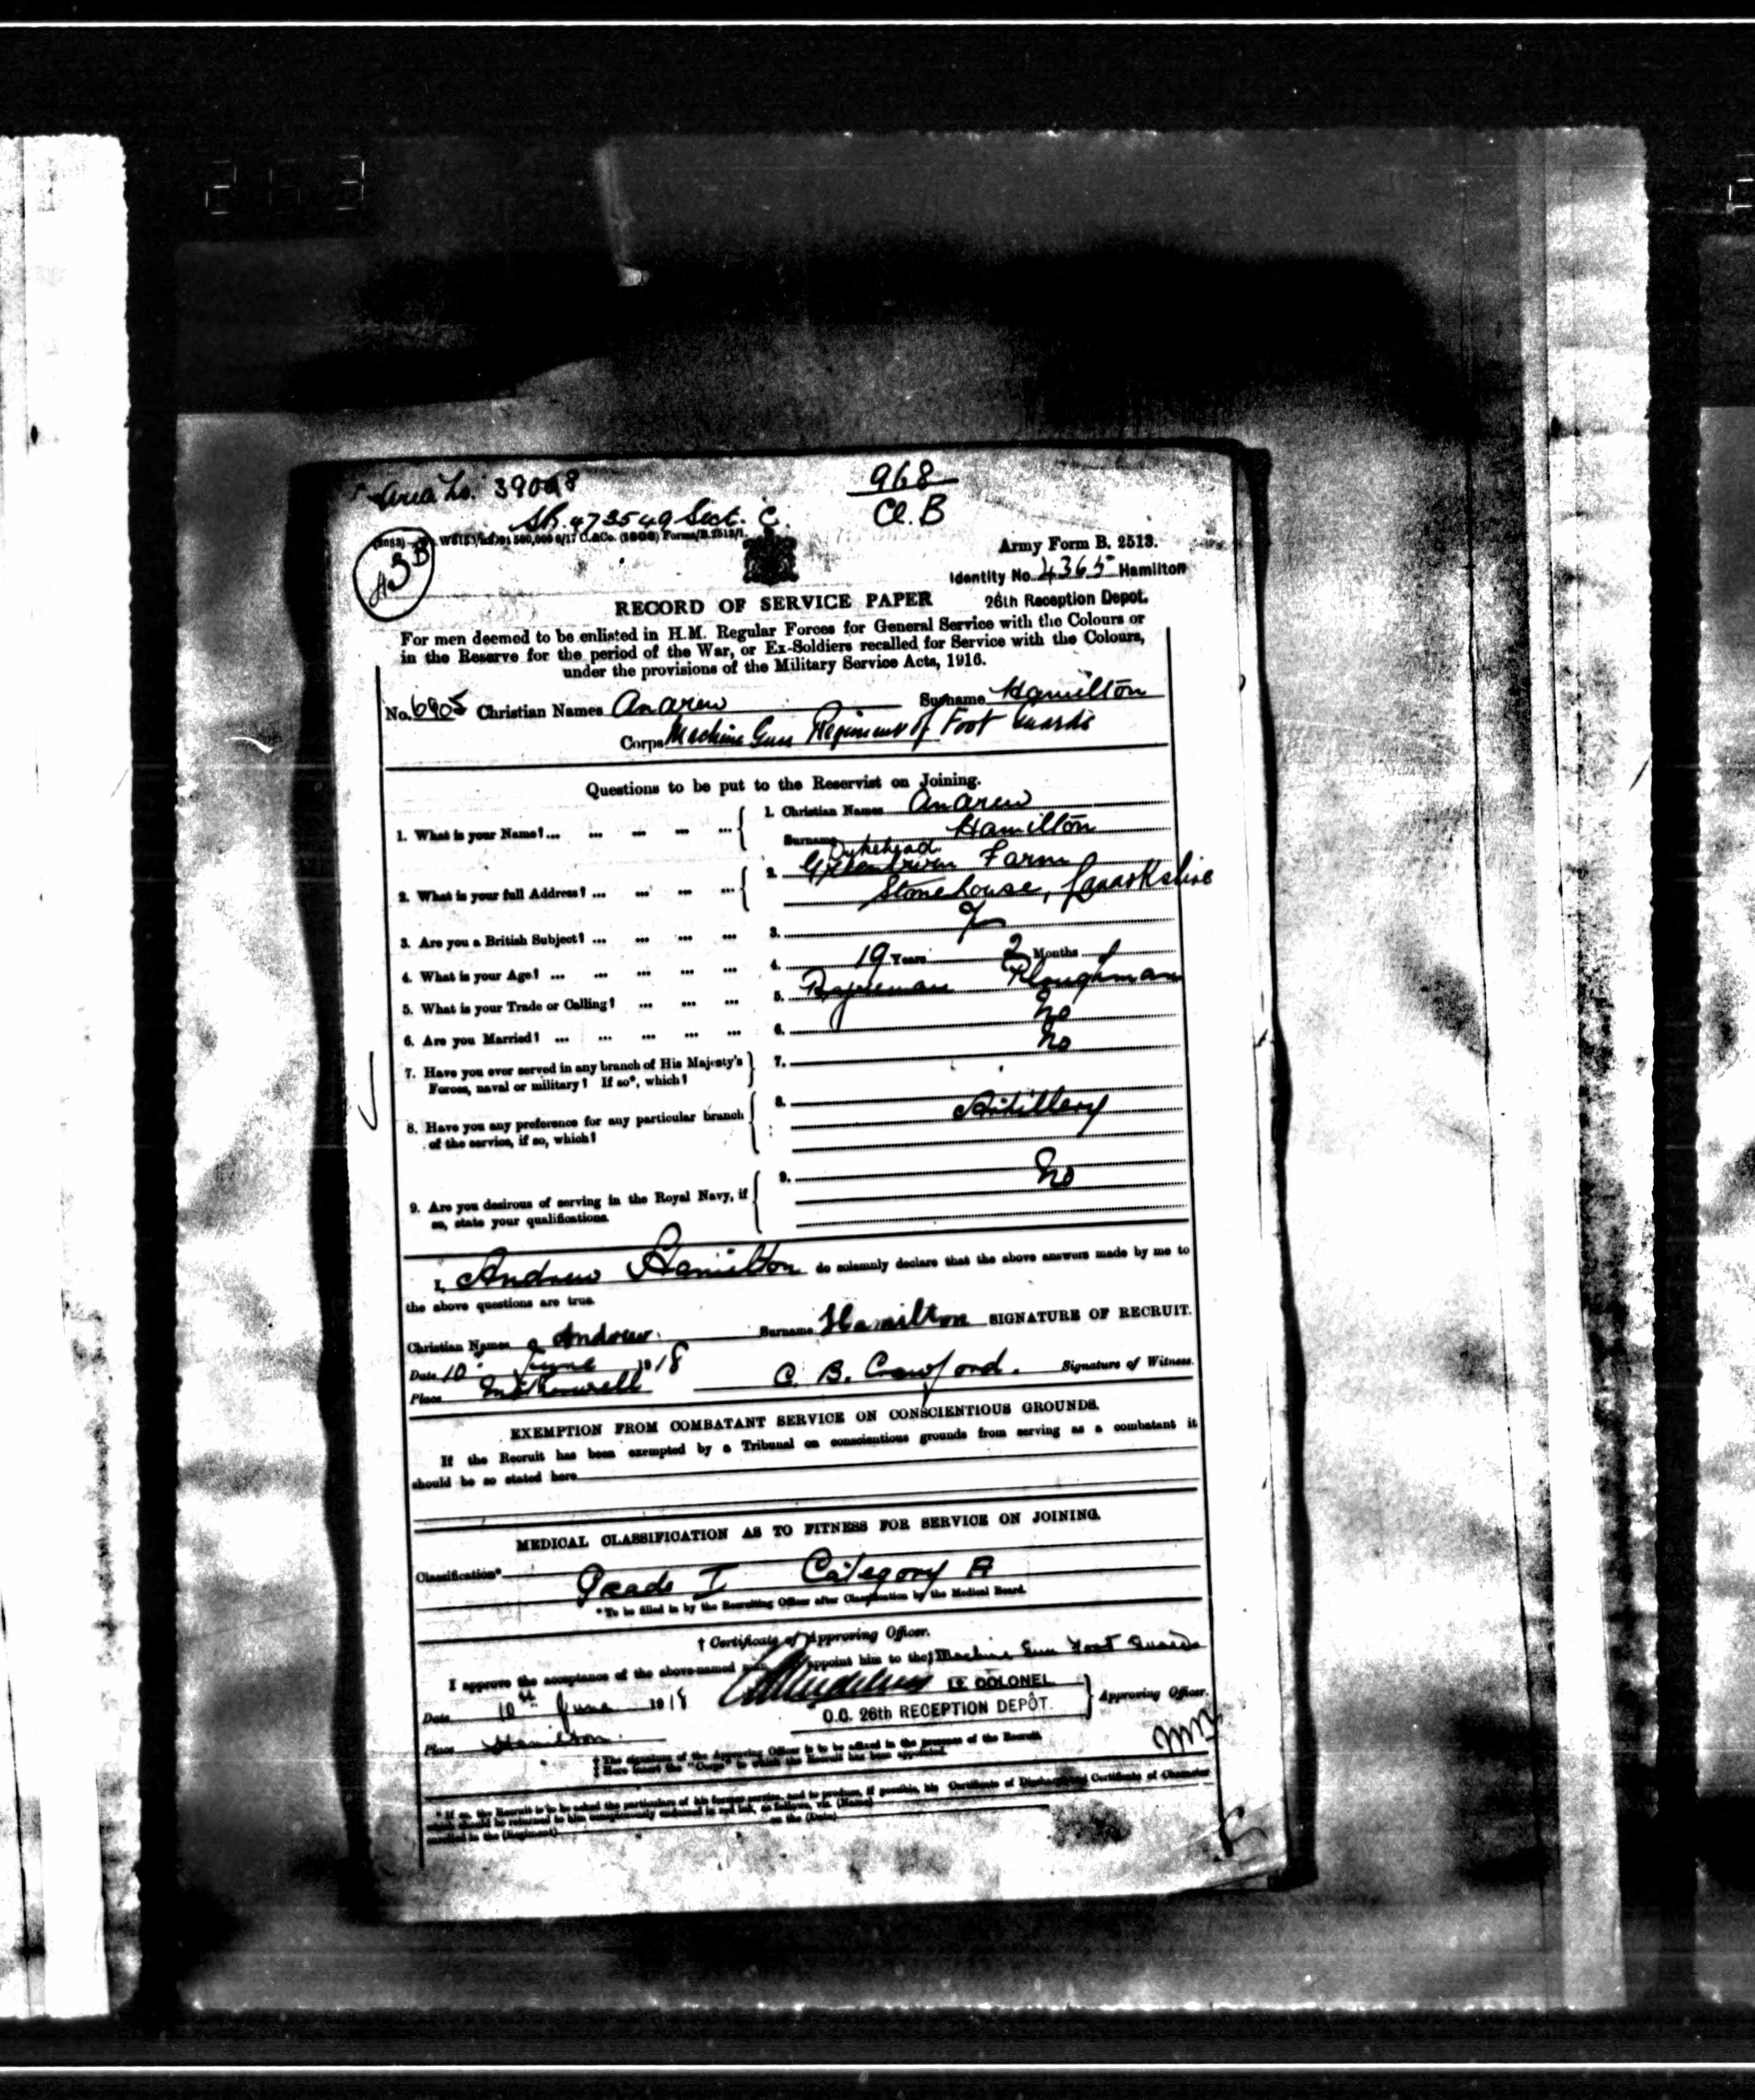 263
Area No. 39098
968
Cl. B
SR. 473549 Sect. C.
H3B
Army Form B. 2513.
Identity No. 4365 Hamilton
26th Reception Depot.
RECORD OF SERVICE PAPER
For men deemed to be enlisted in H.M. Regular Forces for General Service with the Colours or
in the Reserve for the period of the War, or Ex-Soldiers recalled for Service with the Colours,
under the provisions of the Military Service Acts, 1916.
No. 6905 Christian Names Andrew Surname Hamilton
Corps Machine Gun Regiment of Foot Guards
Questions to be put to the Reservist on Joining.
1. What is your Name? ... ... ... ... 1. Christian Names Andrew
Surname Hamilton
Dykehead
2. What is your full Address? ... ... ... ... 2. Farm
Stonehouse, Lanarkshire
3. Are you a British Subject? ... ... ... ... 3.
4. What is your Age? ... ... ... ... ... 4. 19 Years 2 Months
5. What is your Trade or Calling? ... ... ... 5. Ploughman
6. Are you Married? ... ... ... ... ... 6. No
7. Have you ever served in any branch of His Majesty's
Forces, naval or military? If so*, which? 7. No
8. Have you any preference for any particular branch
of the service, if so, which? 8. Artillery
9. Are you desirous of serving in the Royal Navy, if
so, state your qualifications. 9. No
I, Andrew Hamilton do solemnly declare that the above answers made by me to
the above questions are true.
Christian Names Andrew Surname Hamilton SIGNATURE OF RECRUIT.
Date 10 June 1918
Place Motherwell C. B. Crawford. Signature of Witness.
EXEMPTION FROM COMBATANT SERVICE ON CONSCIENTIOUS GROUNDS.
If the Recruit has been exempted by a Tribunal on conscientious grounds from serving as a combatant it
should be so stated here
MEDICAL CLASSIFICATION AS TO FITNESS FOR SERVICE ON JOINING.
Classification* Grade I Category A
*To be filled in by the Recruiting Officer after Classification by the Medical Board.
† Certificate of Approving Officer.
I approve the acceptance of the above-named appoint him to the‡ Machine Gun Foot Guards
LT. COLONEL
Date 10th June 1918 O.C. 26th RECEPTION DEPÔT. Approving Officer.
Place Hamilton.
† The signature of the Approving Officer is to be affixed in the presence of the Recruit.
‡ Here insert the "Corps" to which the Recruit has been appointed.
* If so, the Recruit is to be asked the particulars of his former service, and to produce, if possible, his Certificate of Discharge and Certificate of Character
which should be returned to him conspicuously endorsed in red ink, as follows, viz. (Name)
enrolled in the (Regiment) on the (Date)